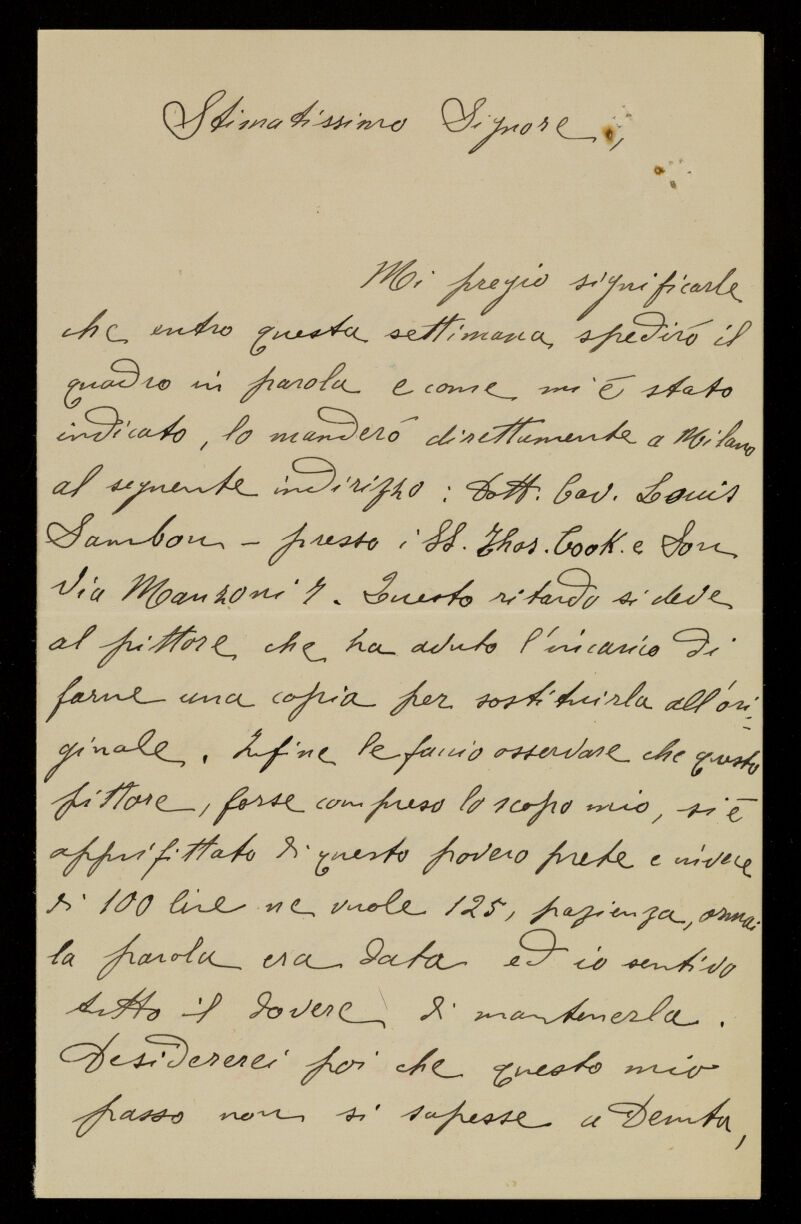 Stimatissimo Signore,
Mi pregio significarle
che entro questa settimana spedirò il
quadro in parola e come mi è stato
indicato, lo manderó direttamente a Milano
al seguente indirizzo : Dott. Cav. Louis
Sambon – presso i SS. Thos. Cook. e Son
Via Manzoni 7. Questo ritardo si deve
al pittore che ha avuto l'incarico di
farne una copia per sostituirla all'ori=
ginale. Infine le faccio osservare che questo
pittore, forse compreso lo scopo mio, si è
apprifittato di questo povero prete e invece
di 100 lire ne vuole 125, pazienza, ormai
la parola era data ed io sentivo
tutto il dovere di mantenerla.
Desidererei poi che questo mio
passo non si sapesse a